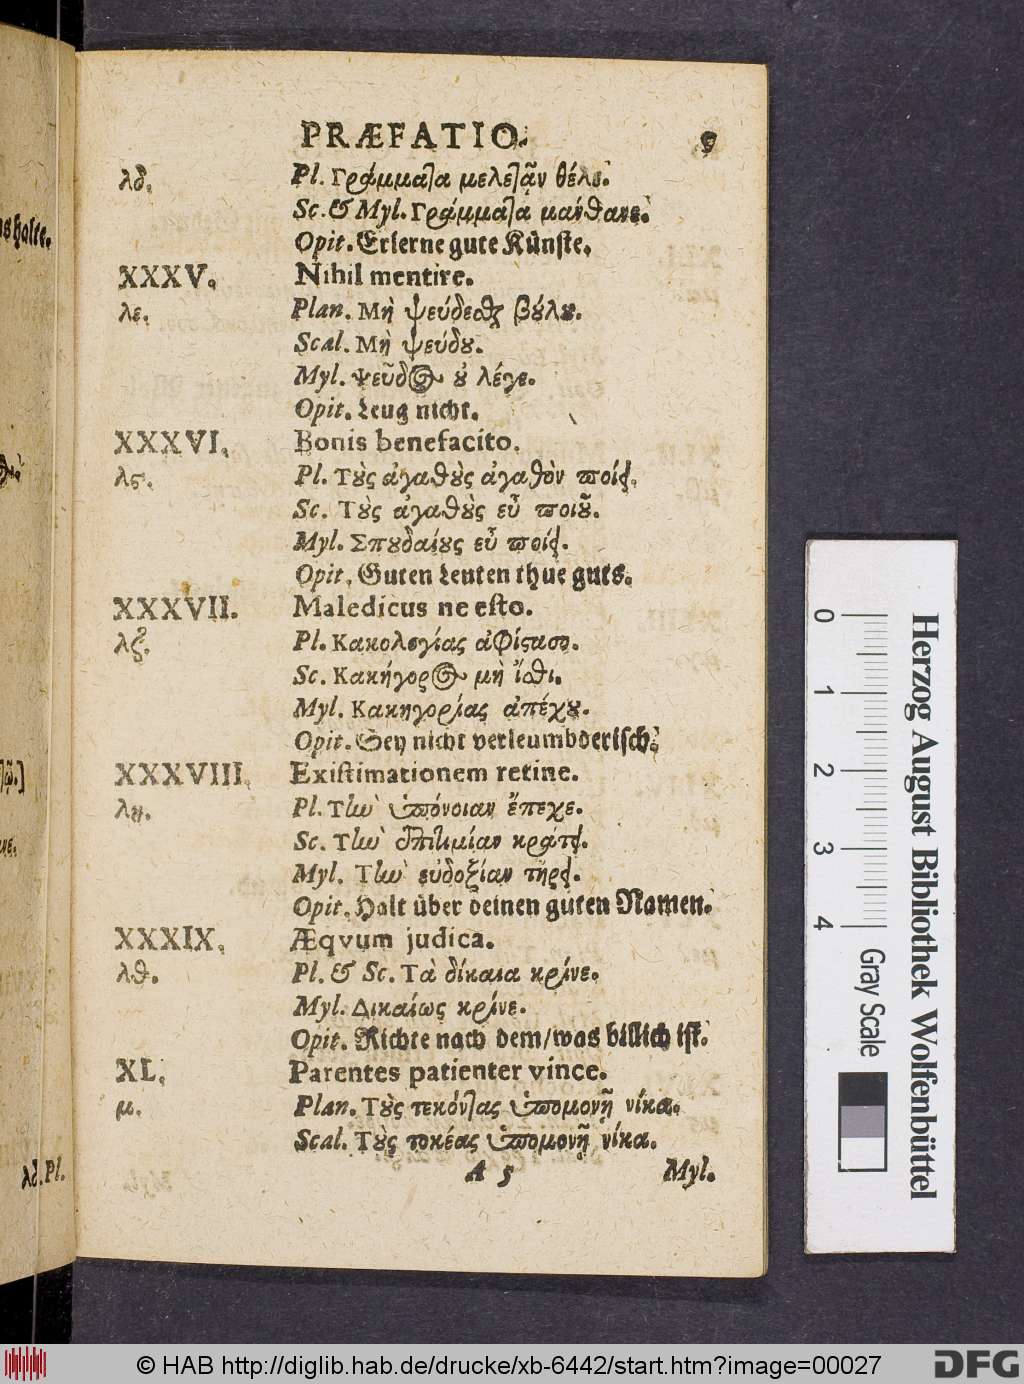 PRÆFATIO. 9
λδ. Pl. Γράμματα μελετᾶν θέλε.
Sc. & Myl. Γράμματα μάνθανε.
Opit. Erlerne gute Künste.
XXXV. Nihil mentire.
λε. Plan. Μὴ ψεύδεσθαι βούλου.
Scal. Μὴ ψεύδου.
Myl. Ψεῦδος οὐ λέγε.
Opit. Leug nicht.
XXXVI. Bonis benefacito.
λς. Pl. Τοὺς ἀγαθοὺς ἀγαθὸν ποίει.
Sc. Τοὺς ἀγαθοὺς εὖ ποιοῦ.
Myl. Σπουδαίους εὖ ποίει.
Opit. Guten Leuten thue guts.
XXXVII. Maledicus ne esto.
λζ. Pl. Κακολογίας ἀφίστασο.
Sc. Κακήγορος μὴ ἴσθι.
Myl. Κακηγορίας ἀπέχου.
Opit. Sey nicht verleumbderisch.
XXXVIII. Existimationem retine.
λη. Pl. Τὴν ὑπόνοιαν ἔπεχε.
Sc. Τὴν ἐπιτιμίαν κράτει.
Myl. Τὴν εὐδοξίαν τήρει.
Opit. Halt über deinen guten Namen.
XXXIX. Æqvum judica.
λθ. Pl. & Sc. Τὰ δίκαια κρίνε.
Myl. Δικαίως κρίνε.
Opit. Richte nach dem/was billich ist.
XL. Parentes patienter vince.
μ. Plan. Τοὺς τεκόντας ὑπομονῇ νίκα.
Scal. Τοὺς τοκέας ὑπομονῇ νίκα.
A 5 Myl.
λδ. Pl.
Herzog August Bibliothek Wolfenbüttel
0 1 2 3 4 Gray Scale
© HAB http://diglib.hab.de/drucke/xb-6442/start.htm?image=00027 DFG